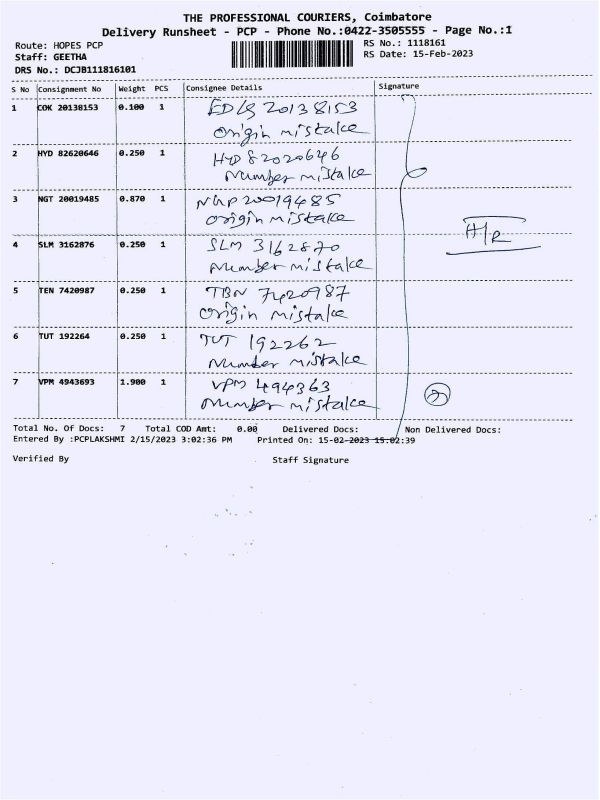 THE PROFESSIONAL COURIERS, Coimbatore
Delivery Runsheet - PCP - Phone No.:0422-3505555 - Page No.:1
Route: HOPES PCP
Staff: GEETHA
DRS No.: DCJB111816101
RS No.: 1118161
RS Date: 15-Feb-2023
S No Consignment No Weight PCS Consignee Details Signature
1 COK 20138153 0.100 1 EDLS 20138153
Origin mistake
2 HYD 82620646 0.250 1 HYD 82020646
Number mistake
3 NGT 20019485 0.870 1 20019485
Origin mistake
4 SLM 3162876 0.250 1 SLM 3162870
Number mistake
5 TEN 7420987 0.250 1 TBN 7420987
Origin mistake
6 TUT 192264 0.250 1 TUT 192262
Number mistake
7 VPM 4943693 1.900 1 VPM 494363
Number mistake
Total No. Of Docs: 7 Total COD Amt: 0.00 Delivered Docs: Non Delivered Docs:
Entered By :PCPLAKSHMI 2/15/2023 3:02:36 PM Printed On: 15-02-2023 15:02:39
Verified By Staff Signature